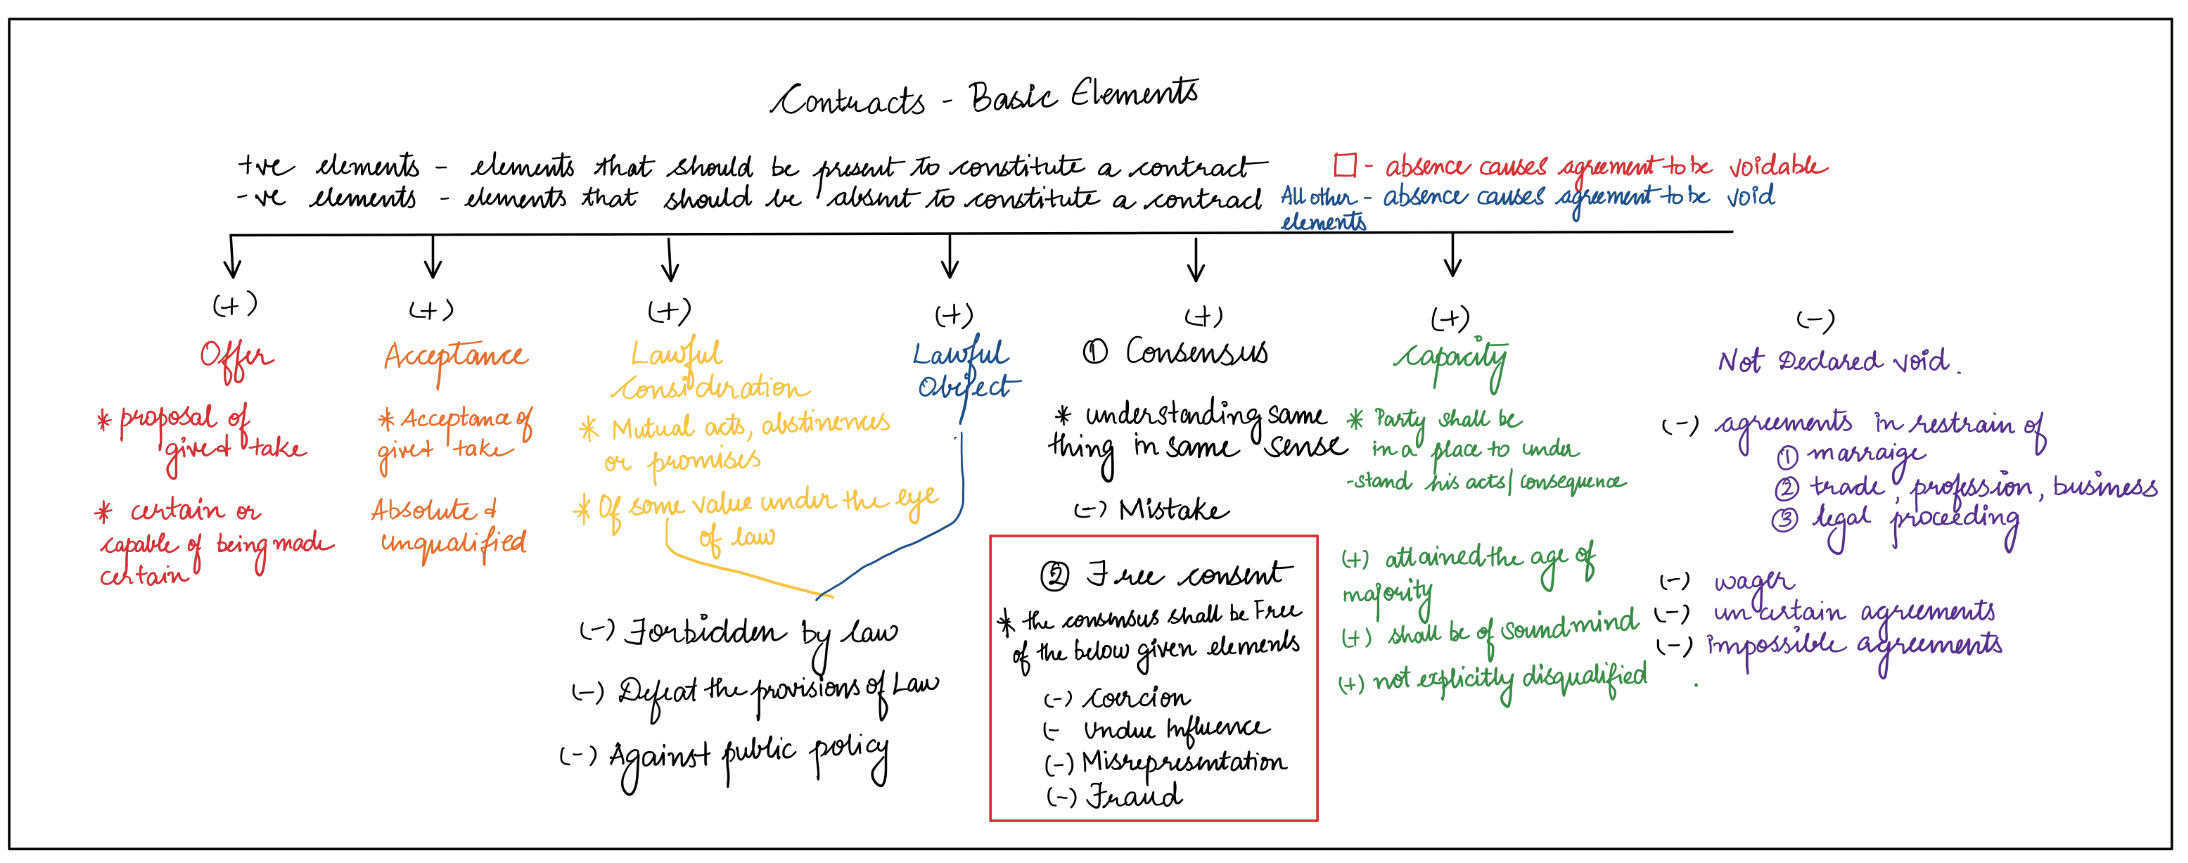 Contracts - Basic Elements
+ve elements - elements that should be present to constitute a contract
-ve elements - elements that should be absent to constitute a contract
- absence causes agreement to be voidable
All other - absence causes agreement to be void
elements
(+)
Offer
* proposal of
give & take
* certain or
capable of being made
certain
(+)
Acceptance
* Acceptance of
give & take
Absolute &
unqualified
(+)
Lawful
Consideration
* Mutual acts, abstinences
or promises
* Of some value under the eye
of law
(+)
Lawful
Object
(-) Forbidden by law
(-) Defeat the provisions of Law
(-) Against public policy
(+)
① Consensus
* understanding same
thing in same sense
(-) Mistake
② Free consent
* the consensus shall be Free
of the below given elements
(-) Coercion
(- Undue Influence
(-) Misrepresentation
(-) Fraud
(+)
Capacity
* Party shall be
in a place to under
-stand his acts/consequence
(+) attained the age of
majority
(+) shall be of sound mind
(+) not explicitly disqualified
(-)
Not Declared void.
(-) agreements in restrain of
① marraige
② trade, profession, business
③ legal proceeding
(-) wager
(-) uncertain agreements
(-) impossible agreements